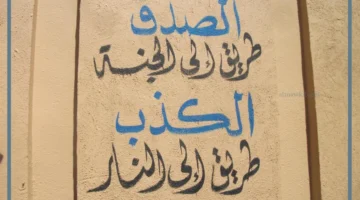 الصدق
طريق إلى الجنة
الكذب
طريق إلى النار